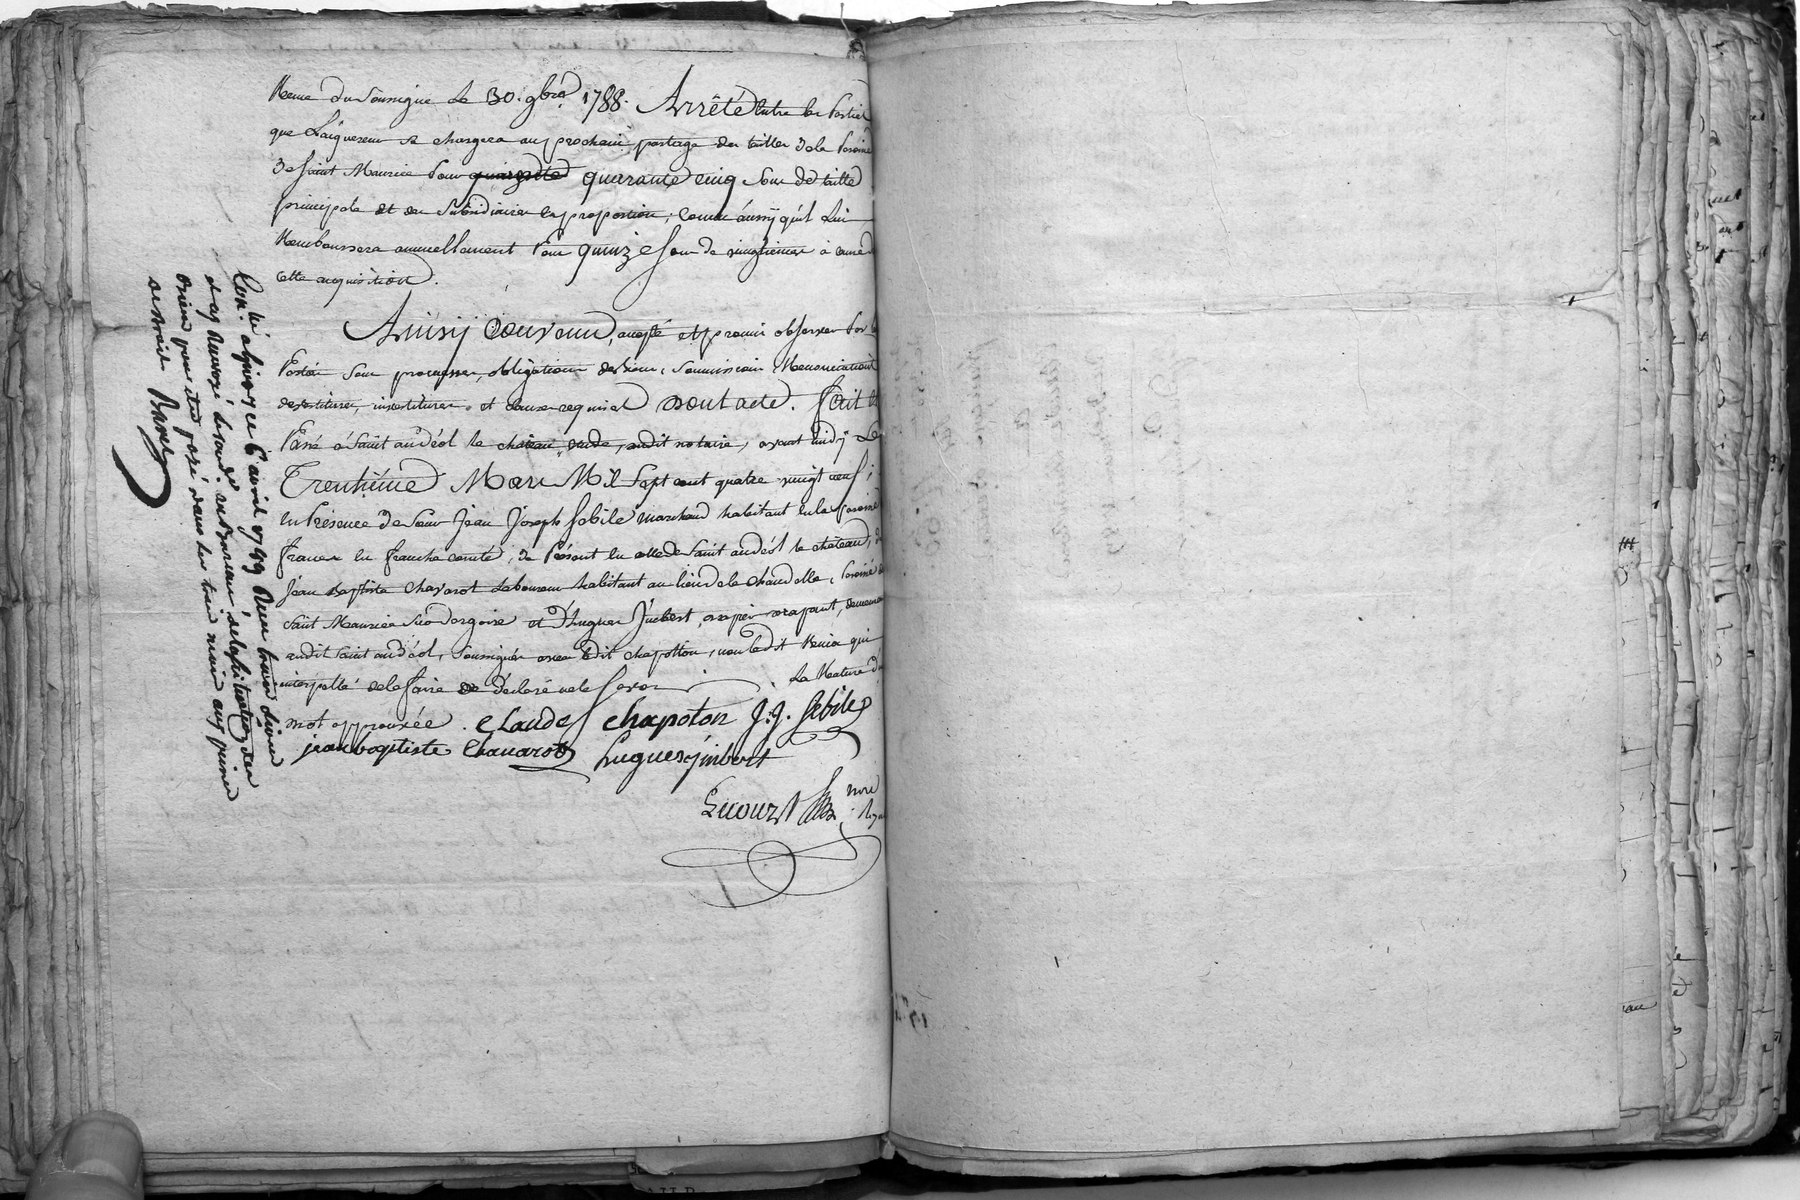 Reçue du soussigné le 30. 9bre 1788. Arrêté entre les Parties
que l'acquereur se chargera au prochain partage des tailles de la Paroisse
de Saint Maurice Pour quarante cinq sous de taille
principale et des subsidiaires en proportion, comme aussy qu'il lui
Remboursera annuellement Pour quinze sous de vingtiemes à cause de
cette acquisition.
Ainsy convenu, accepté et promis observer Par les
Parties sous promesses, obligations de biens, soumissions Renonciations
devestitures, investitures, et clauses requises dont acte. Fait et
Passé à Saint andéol le château, étude dudit notaire, avant midy Le
Trentième Mars Mil Sept cent quatre vingt neuf,
En Présence de Sieur Jean Joseph Sebile marchand habitant en la Paroisse
en franche comté, de Présent en celle de Saint andéol le château, de
Jean Baptiste Chavarot Laboureur habitant au lieu de la chaudelle, Paroisse de
Saint Maurice sur dargoire et d'hugues Jmbert,
audit Saint andéol, soussignés avec ledit chapotton, non ledit qui
interpellé de le faire a déclaré ne le savoir La Rature d'un
mot approuvée. Claude chapoton J.J. Sebile
jean baptiste Chavarot hugues jmbert
nore Royal
Conlé à givors ce 6 avril 1789 Reçu trois livres
et Renvoyé au Bureau de la situation des
Biens pour être payé dans les trois mois aux peines
de Droit